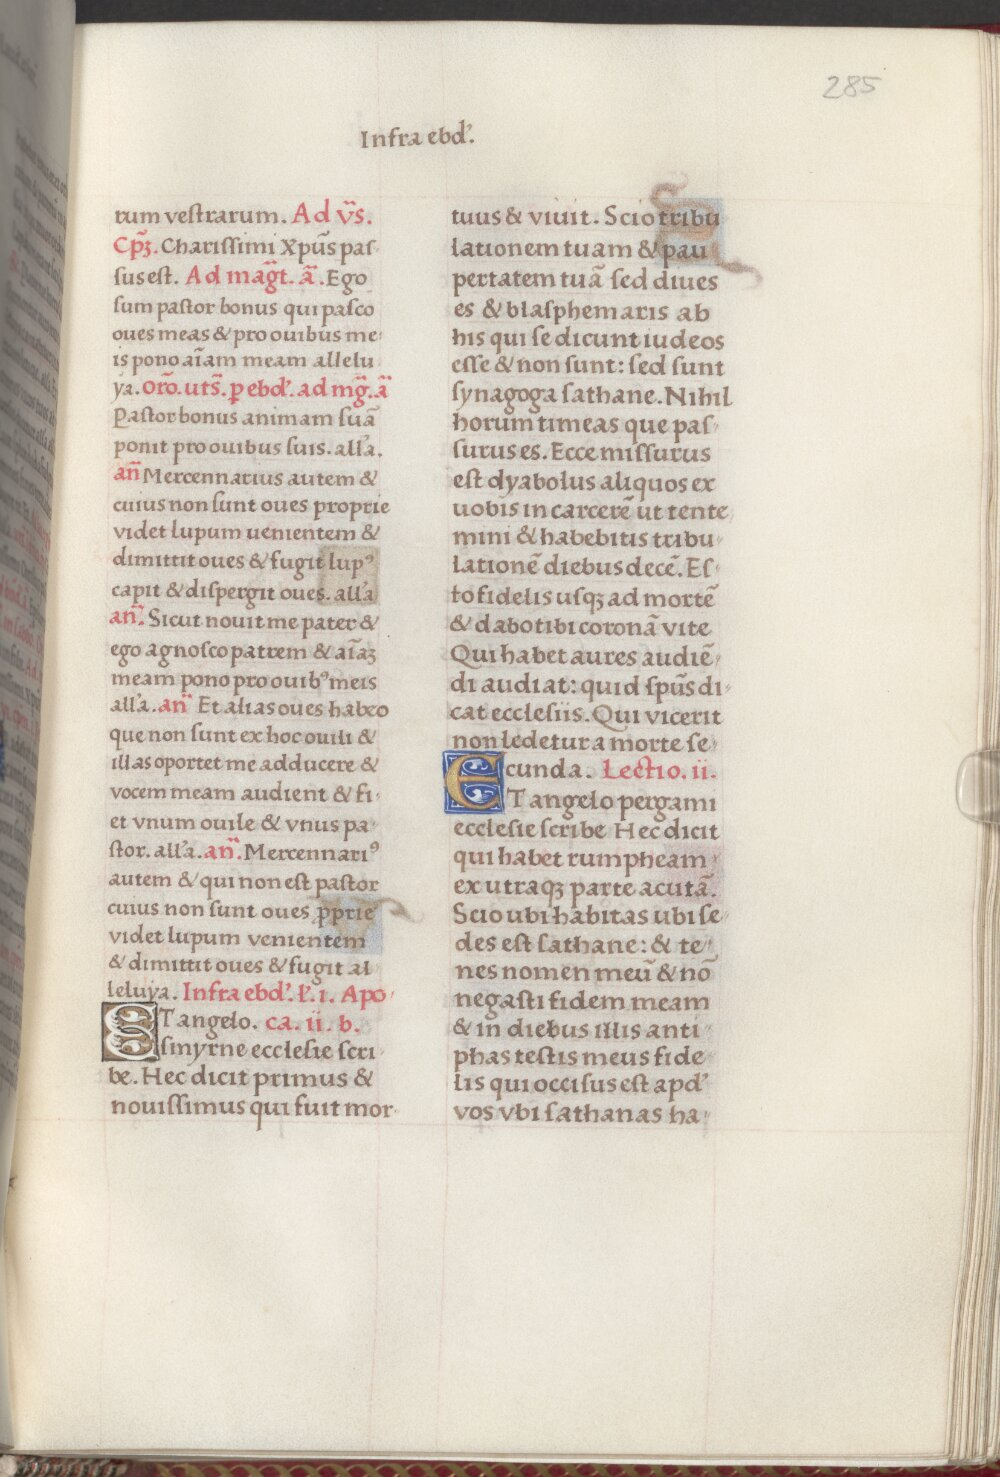 285
Infra ebd᾽.
tum vestrarum. Ad v̄s.
Cp̄ꝫ. Charissimi Xpūs pas
sus est. Ad mag̃t. ã. Ego
sum pastor bonus qui pasco
oues meas & pro ouibus me
is pono aīam meam allelu
ya. orō. uts̄. p ebd᾽. ad mg̃. ã
Pastor bonus animam suā
ponit pro ouibus suis. all᾽a.
an̄ Mercennarius autem &
cuius non sunt oues proprie
videt lupum uenientem &
dimittit oues & fugit lupꝰ
capit & dispergit oues. all᾽a
an̄. Sicut nouit me pater &
ego agnosco patrem & aīaꝫ
meam pono pro ouibꝰ meis
all᾽a. an̄ Et alias oues habeo
que non sunt ex hoc ouili &
illas oportet me adducere &
vocem meam audient & fi-
et vnum ouile & vnus pa-
stor. all᾽a. an̄. Mercennariꝰ
autem & qui non est pastor
cuius non sunt oues ꝓprie
videt lupum venientem
& dimittit oues & fugit al
leluya. Infra ebd᾽. l᾽. i. Apo-
ET angelo. ca. ii. b.
smyrne ecclesie scri
be. Hec dicit primus &
nouissimus qui fuit mor-
tuus & viuit. Scio tribu
lationem tuam & pau
pertatem tuā sed diues
es & blasphemaris ab
his qui se dicunt iudeos
esse & non sunt: sed sunt
synagoga sathane. Nihil
horum timeas que pas-
surus es. Ecce missurus
est dyabolus aliquos ex
uobis in carcerē ut tente
mini & habebitis tribu-
lationē diebus decē. Es-
to fidelis usqꝫ ad mortē
& dabo tibi coronā vite
Qui habet aures audiē-
di audiat: quid spūs di-
cat ecclesiis. Qui vicerit
non ledetur a morte se-
cunda. Lectio. ii.
ET angelo pergami
ecclesie scribe Hec dicit
qui habet rumpheam
ex utraqꝫ parte acutā.
Scio ubi habitas ubi se-
des est sathane: & te-
nes nomen meū & nō
negasti fidem meam
& in diebus illis anti-
phas testis meus fide-
lis qui occisus est apd᾽
vos vbi sathanas ha-